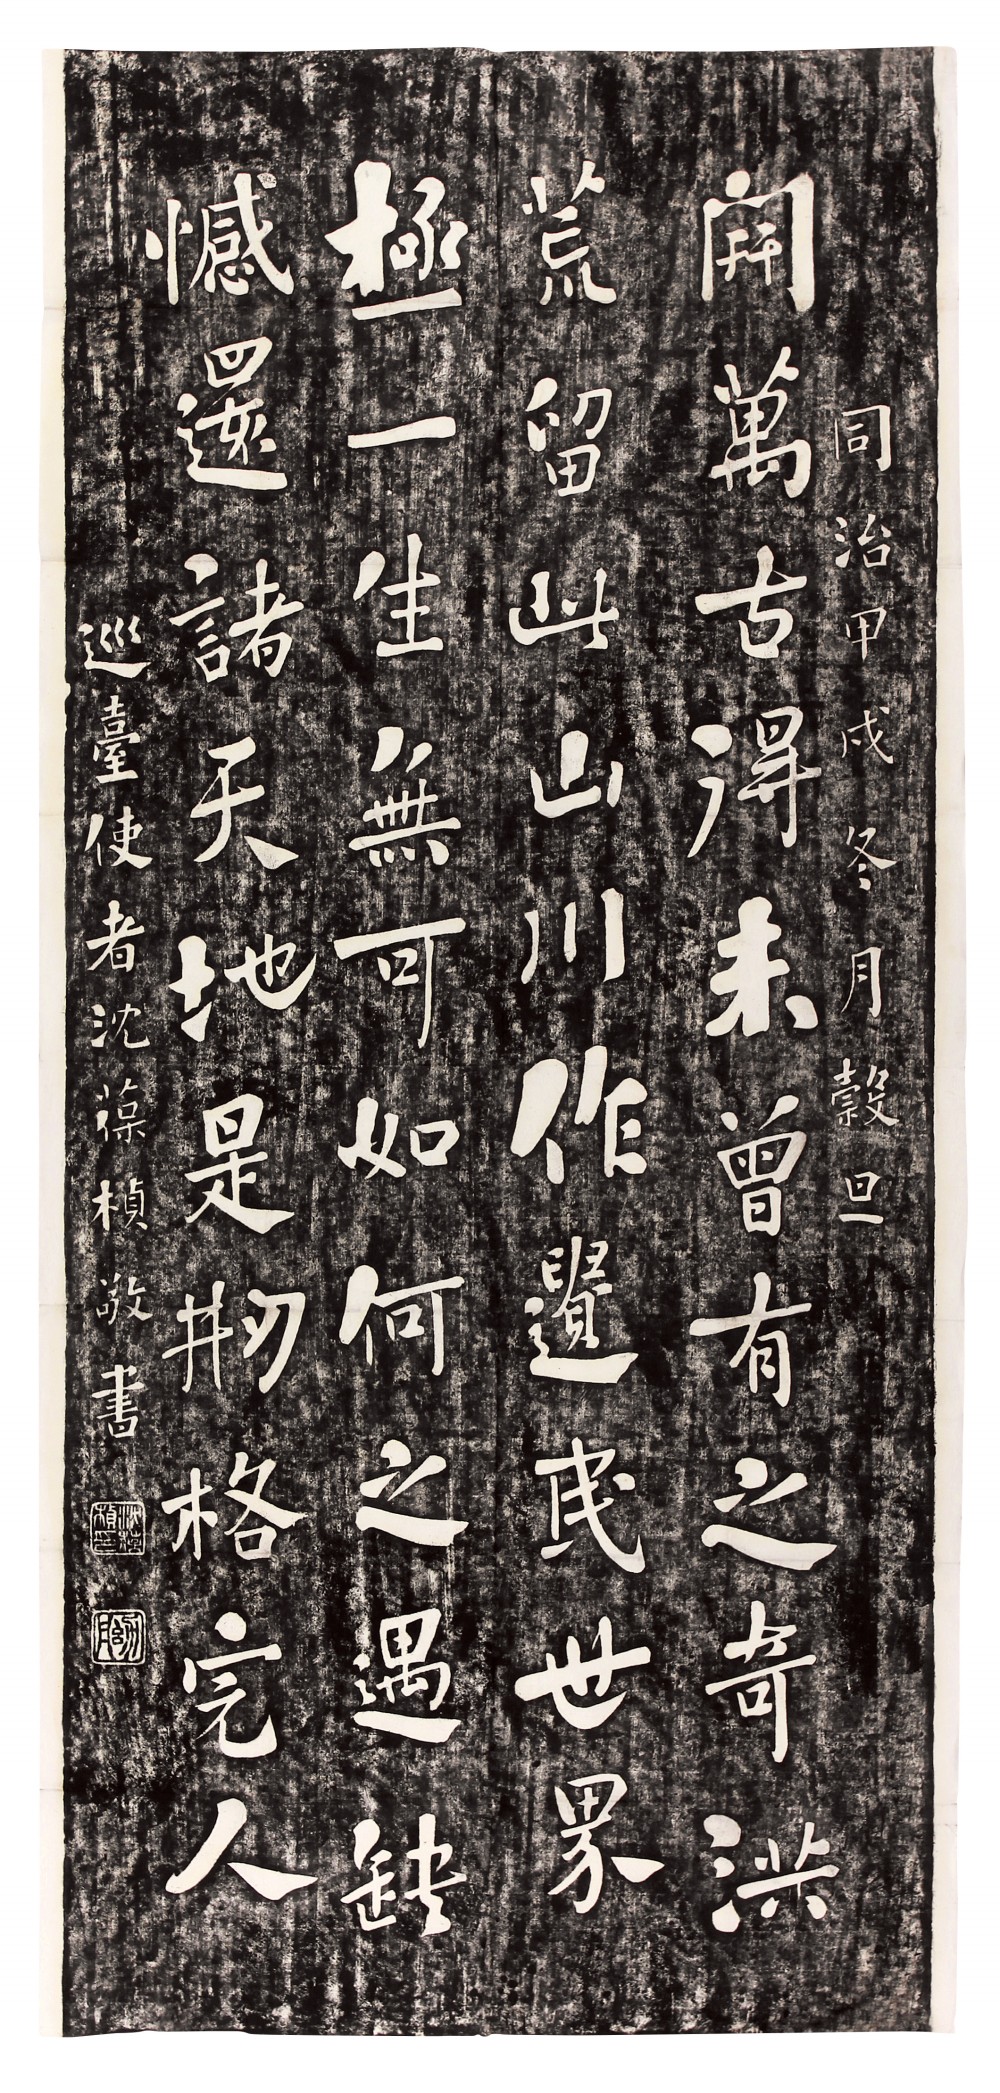 同治甲戌冬月穀旦
開萬古得未曾有之奇洪
荒留此山川作遺民世界
極一生無可如何之遇缺
憾還諸天地是刱格完人
巡臺使者沈葆楨敬書
沈葆楨印